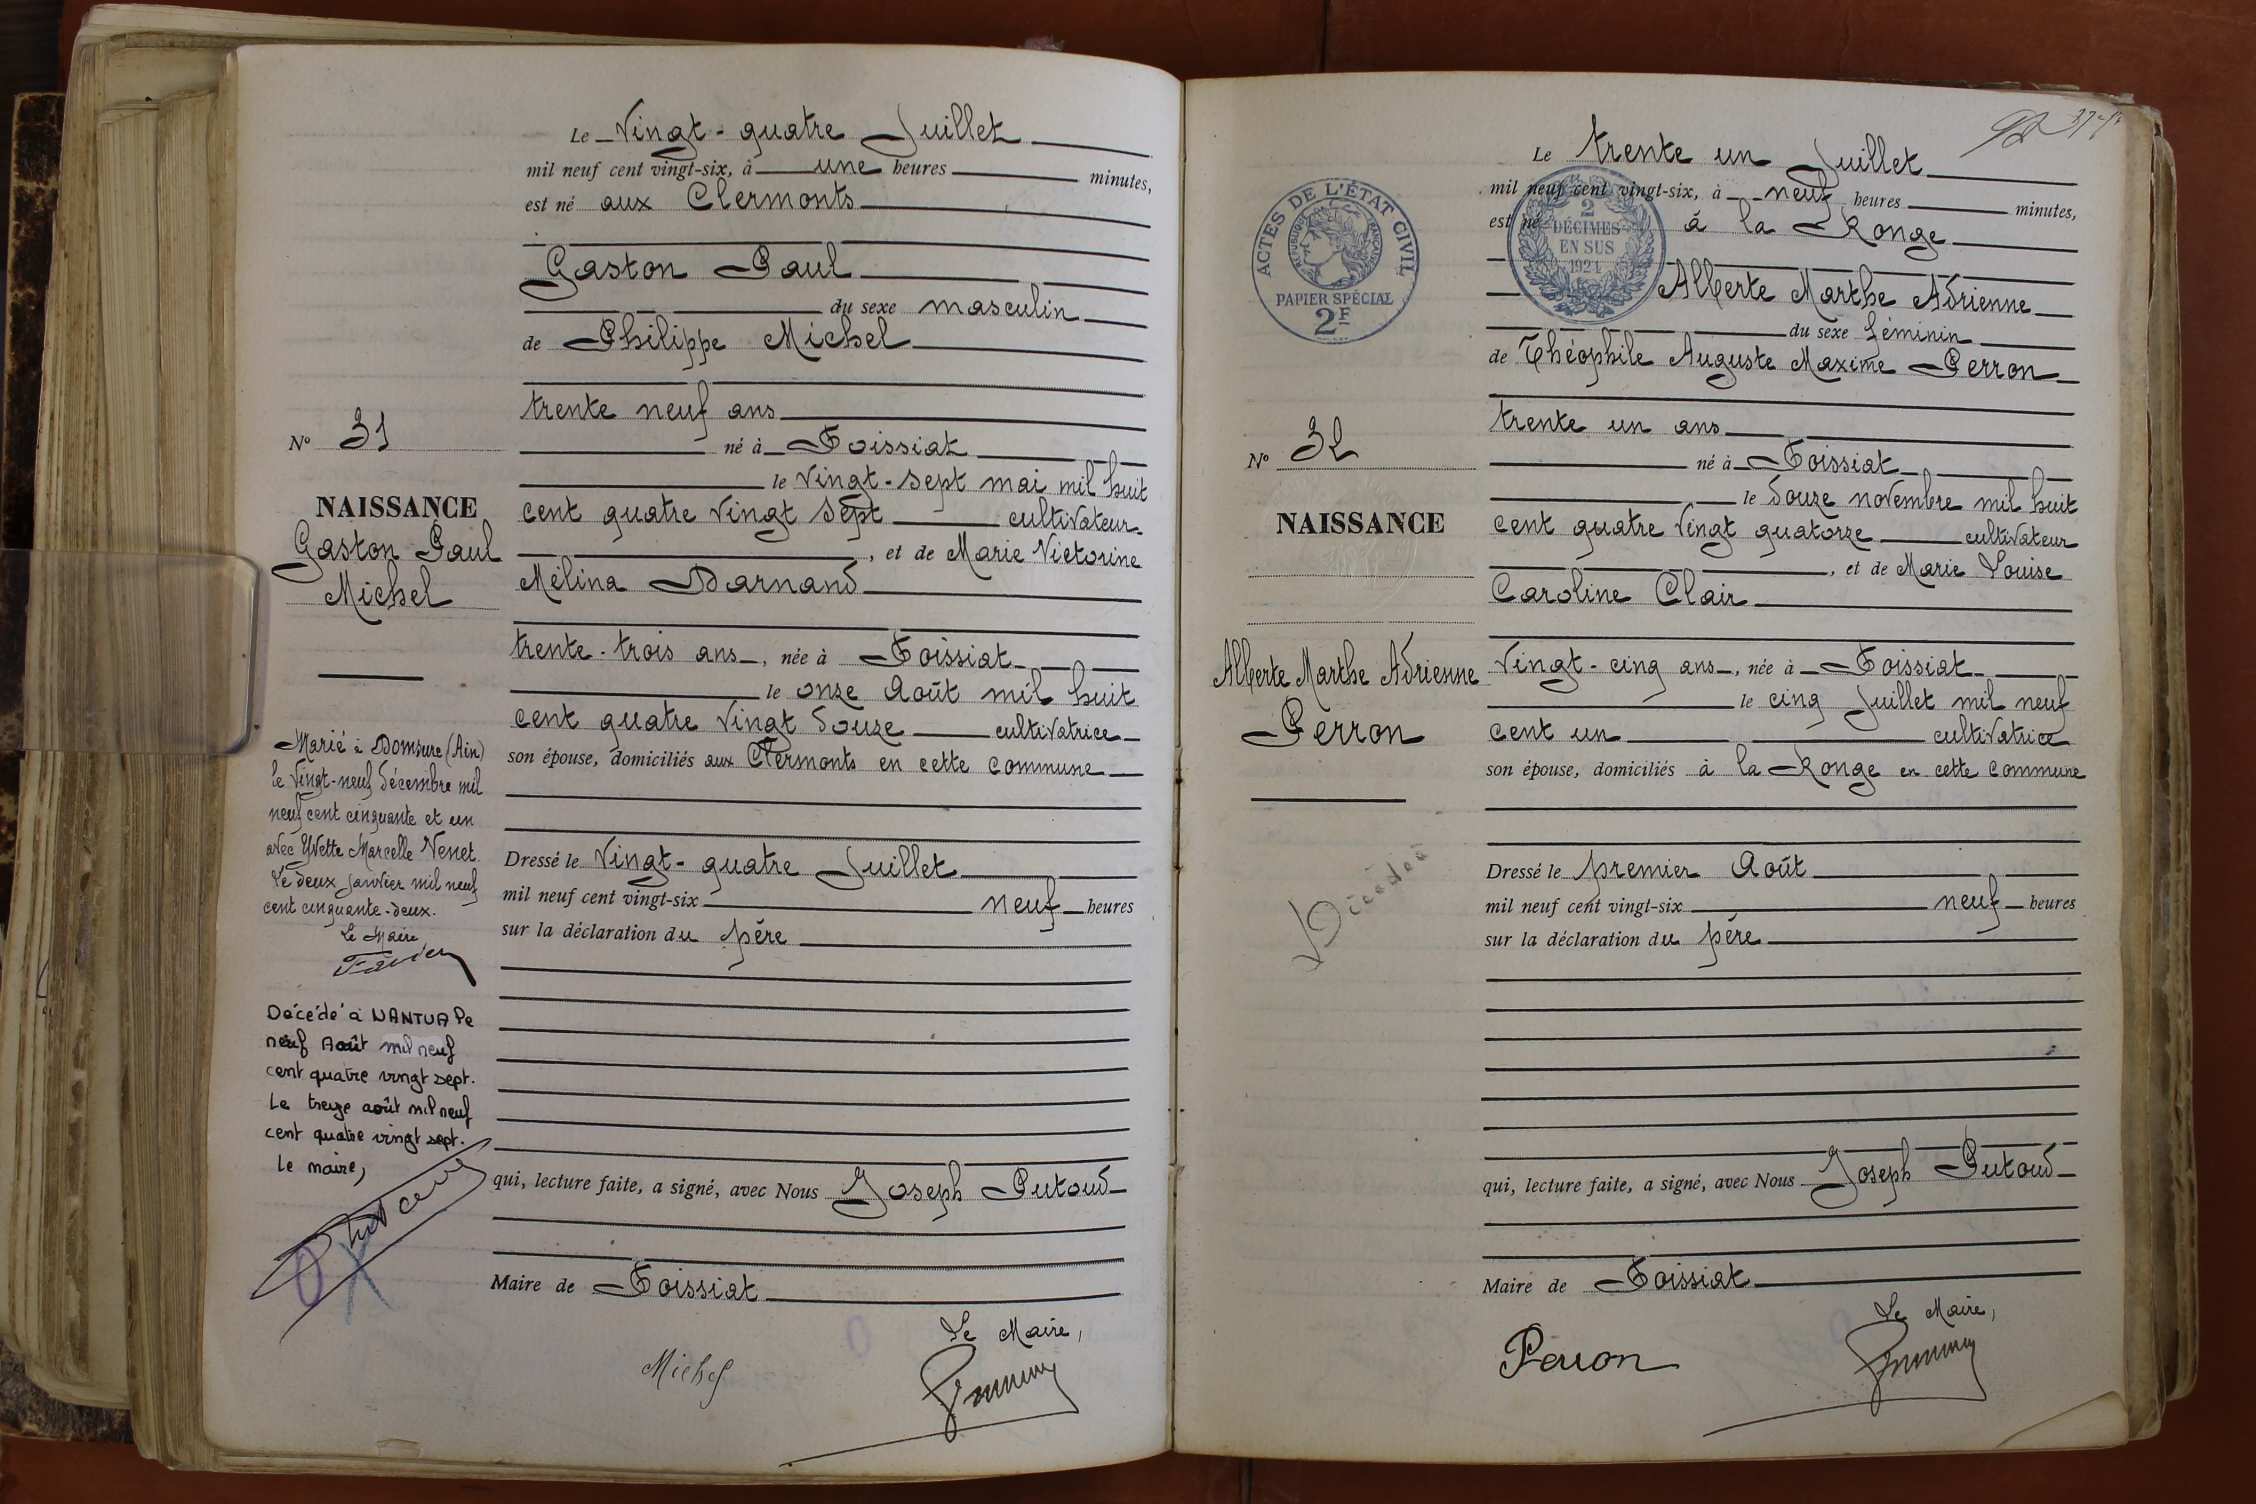 Le Vingt-quatre Juillet
mil neuf cent vingt-six, à une heures minutes,
est né aux Clermonts
Gaston Paul
du sexe masculin
de Philippe Michel
trente neuf ans
né à Foissiat
le vingt-sept mai mil huit
cent quatre vingt sept cultivateur
, et de Marie Victorine
Mélina Darnand
trente-trois ans, née à Foissiat
le onze Août mil huit
cent quatre vingt douze cultivatrice
son épouse, domiciliés aux Clermonts en cette commune
Dressé le Vingt-quatre Juillet
mil neuf cent vingt-six neuf heures
sur la déclaration du père
qui, lecture faite, a signé, avec Nous Joseph Putoud
Maire de Foissiat
Le Maire,
Michel
N° 31
NAISSANCE
Gaston Paul
Michel
Marié à Domsure (Ain)
le vingt-neuf décembre mil
neuf cent cinquante et un
avec Yvette Marcelle Venet.
Le deux janvier mil neuf
cent cinquante-deux.
Le Maire
Favier
Décédé à NANTUA le
neuf Août mil neuf
cent quatre vingt sept.
Le treize août mil neuf
cent quatre vingt sept.
Le maire,
Le trente un Juillet
mil neuf cent vingt-six, à neuf heures minutes,
est né à la Ronge
Alberte Marthe Adrienne
du sexe féminin
de Théophile Auguste Maxime Perron
trente un ans
né à Foissiat
le douze novembre mil huit
cent quatre vingt quatorze cultivateur
, et de Marie Louise
Caroline Clair
Vingt-cinq ans, née à Foissiat
le cinq Juillet mil neuf
cent un cultivatrice
son épouse, domiciliés à la Ronge en cette commune
Dressé le premier Août
mil neuf cent vingt-six neuf heures
sur la déclaration du père
qui, lecture faite, a signé, avec Nous Joseph Putoud
Maire de Foissiat
Le Maire,
Perron
ACTES DE L'ÉTAT CIVIL
RÉPUBLIQUE FRANÇAISE
PAPIER SPÉCIAL
2F
2
DÉCIMES
EN SUS
1924
N° 32
NAISSANCE
Alberte Marthe Adrienne
Perron
Décédée